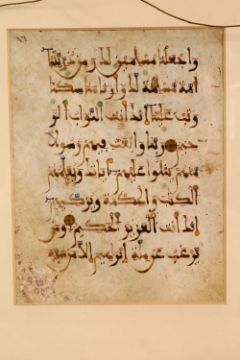 واجعلنا مسلمين لك ومن ذريتنا
امة مسلمة لك وارنا مناسكنا
وتب علينا انك انت التواب الر
حيم ربنا وابعث فيهم رسولا
منهم يتلوا عليهم اياتك ويعلمهم
الكتب والحكمة ويزكيهم
انك انت العزيز الحكيم ومن
يرغب عن ملة ابرهيم الا من سفه